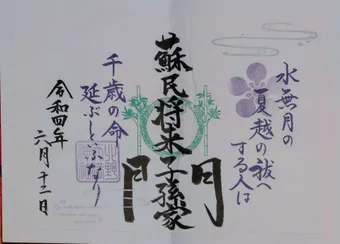 水無月の
夏越の祓へ
する人は
蘇民将来子孫家
門
千歳の命
延ぶといふなり
令和四年
六月十二日